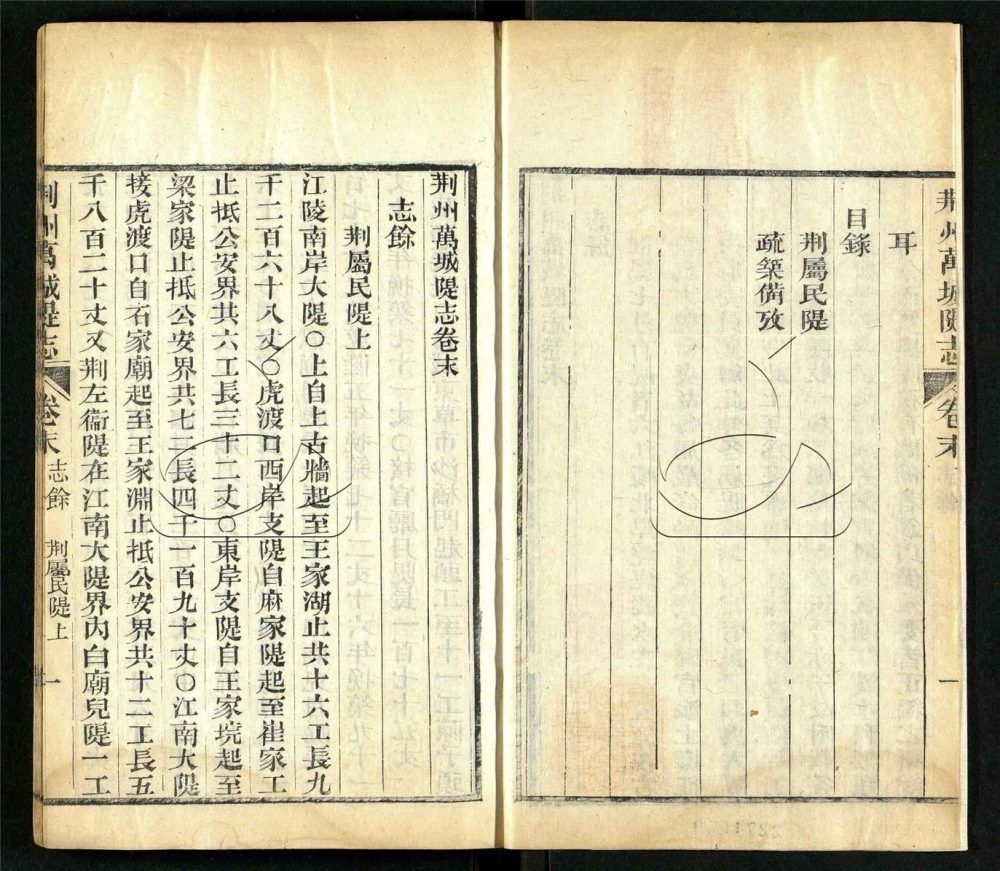 荆州萬城隄志
卷末
志餘
一
耳
目錄
荆屬民隄
疏築備攷
荆州萬城隄志卷末
志餘
荆屬民隄上
江陵南岸大隄〇上自上古牆起至王家湖止共十六工長九
千二百六十八丈〇虎渡口西岸支隄自麻家隄起至崔家工
止抵公安界共六工長三千二丈〇東岸支隄自王家垸起至
梁家隄止抵公安界共七工長四千一百九十丈〇江南大隄
接虎渡口自石家廟起至王家淵止抵公安界共十二工長五
千八百二十丈又荆左衞隄在江南大隄界內白廟兒隄一工
荆州萬城隄志
卷末
志餘
荆屬民隄上
一